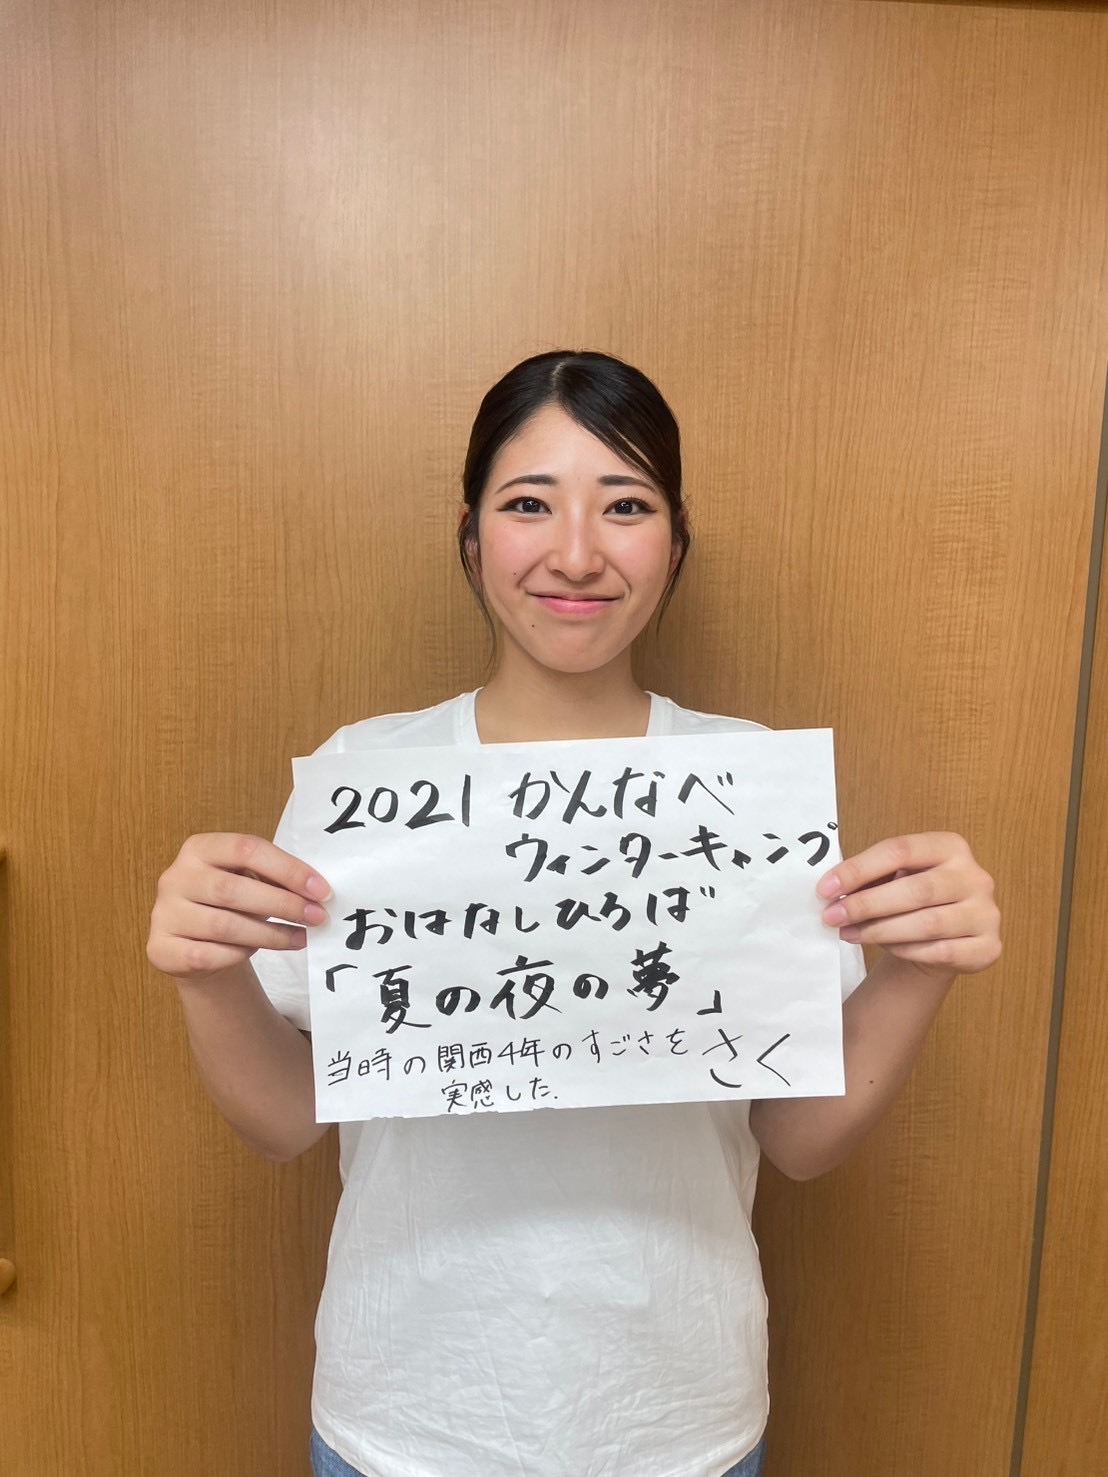 2021 かんなべ
ウィンターキャンプ
おはなしひろば
「夏の夜の夢」
当時の関西4年のすごさを
実感した.
さく